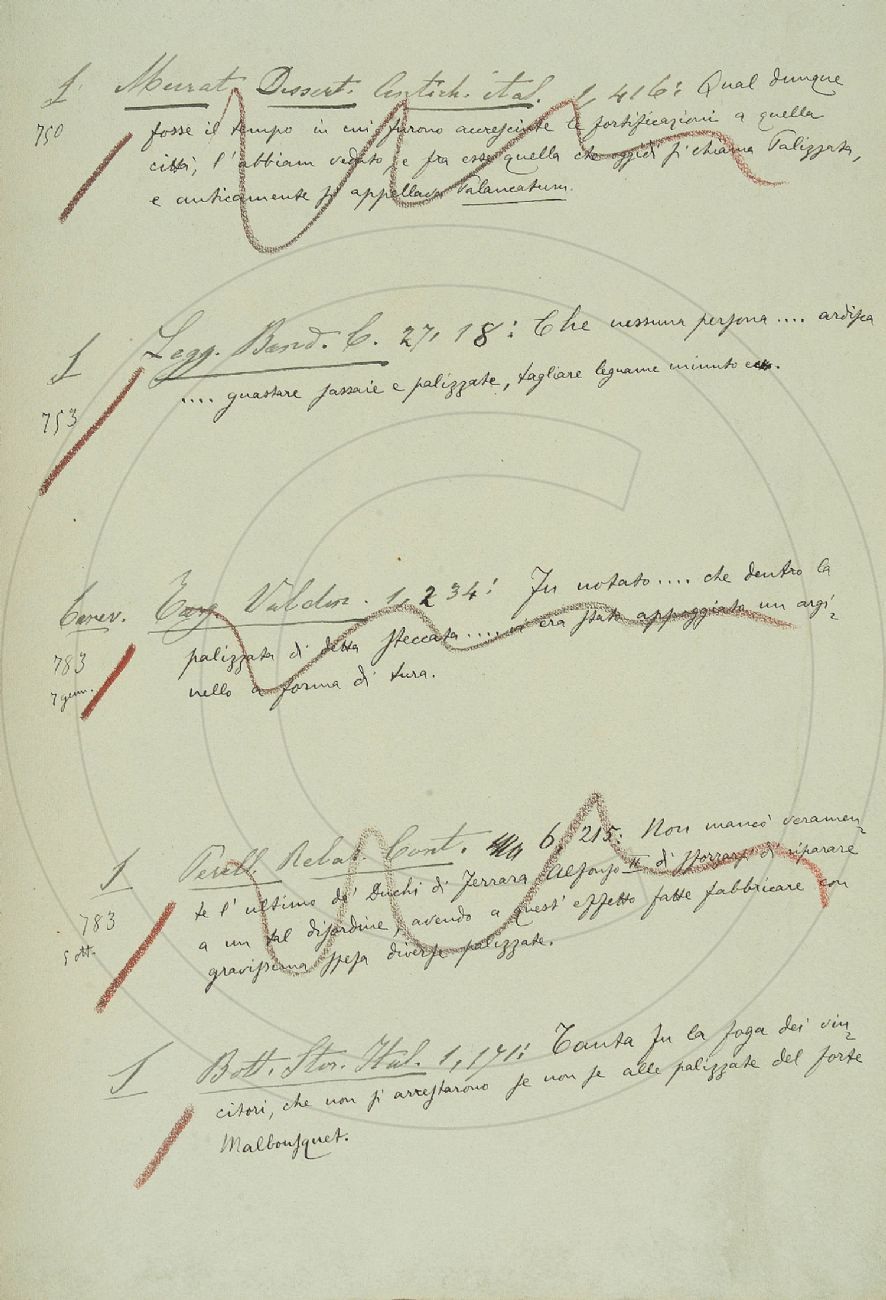 S Murat. Dissert. Antich. ital. 1, 416: Qual dunque
750 fosse il tempo in cui furono accresciute le fortificazioni a quella
città, l'abbiam veduto, e fra esse quella che oggidì si chiama Palizzata,
e anticamente si appellava Palancatum.
S Legg. Band. C. 27, 18: Che nessuna persona .... ardisca
753 .... guastare sassaie e palizzate, tagliare legname minuto ec.
Targ. Valdin. 1, 234: Fu notato .... che dentro la
783 palizzata di detta steccata ..... era stato appoggiato un argi-
7 genn. nello a forma di tura.
S Perell. Relaz. Cont. 6, 215: Non mancò veramen-
783 te l'ultimo de' Duchi di Ferrara Alfonso II di sforzarsi di riparare
5 ott. a un tal disordine, avendo a quest'effetto fatte fabbricare con
gravissima spesa diverse palizzate.
S Bott. Stor. Ital. 1, 171: Tanta fu la foga dei vin-
citori, che non si arrestarono se non se alle palizzate del forte
Malbousquet.